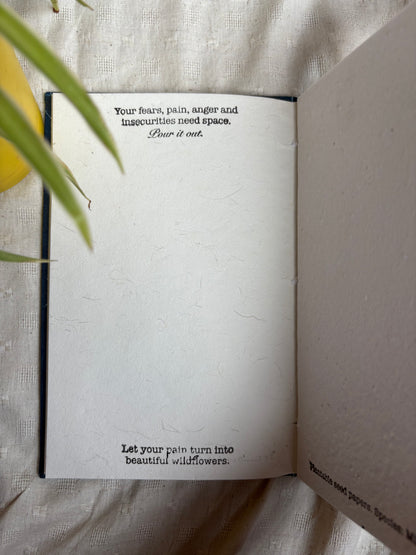 Your fears, pain, anger and
insecurities need space.
Pour it out.
Let your pain turn into
beautiful wildflowers.
Plantable seed papers. Species: